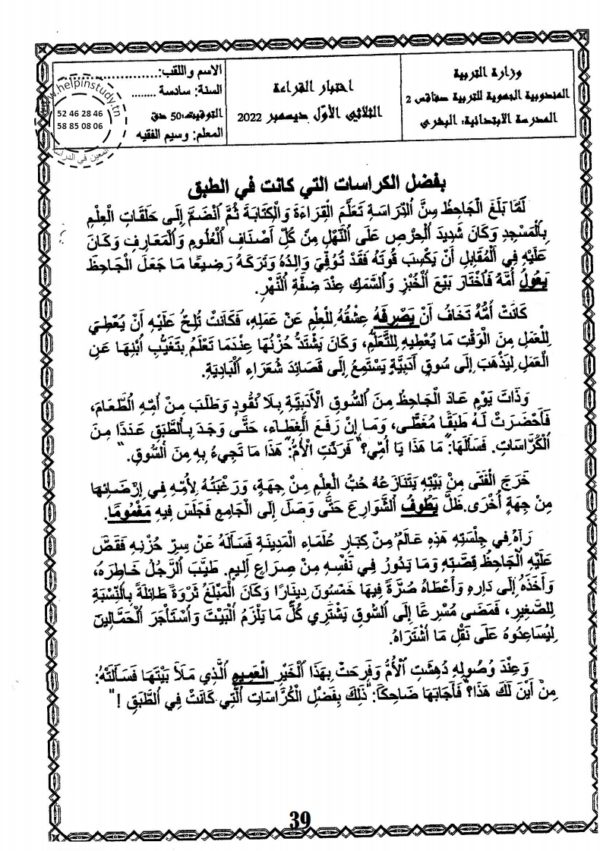 وزارة التربية
المندوبية الجهوية للتربية صفاقس 2
المدرسة الابتدائية: البحري
اختبار القراءة
الثلاثي الأوّل ديسمبر 2022
الاسم واللقب:........................
السنة: سادسة ........
التوقيت: 50 دق
المعلم: وسيم الفقيه
www.helpinstudy.tn
52 46 28 46
58 85 08 06
بفضل الكراسات التي كانت في الطبق
لَمَّا بَلَغَ الْجَاحِظُ سِنَّ الدِّرَاسَةِ تَعَلَّمَ الْقِرَاءَةَ وَالْكِتَابَةَ ثُمَّ انْضَمَّ إِلَى حَلَقَاتِ الْعِلْمِ
بِالْمَسْجِدِ وَكَانَ شَدِيدَ الْحِرْصِ عَلَى النَّهْلِ مِنْ كُلِّ أَصْنَافِ الْعُلُومِ وَالْمَعَارِفِ وَكَانَ
عَلَيْهِ فِي الْمُقَابِلِ أَنْ يَكْسِبَ قُوتَهُ فَقَدْ تُوُفِّيَ وَالِدُهُ وَتَرَكَهُ رَضِيعًا مَا جَعَلَ الْجَاحِظَ
يَعُولُ أُمَّهُ فَاخْتَارَ بَيْعَ الْخُبْزِ وَالسَّمَكِ عِنْدَ ضِفَّةِ النَّهْرِ.
كَانَتْ أُمُّهُ تَخَافُ أَنْ يَصْرِفَهُ عِشْقُهُ لِلْعِلْمِ عَنْ عَمَلِهِ، فَكَانَتْ تُلِحُّ عَلَيْهِ أَنْ يُعْطِيَ
لِلْعَمَلِ مِنَ الْوَقْتِ مَا يُعْطِيهِ لِلتَّعَلُّمِ، وَكَانَ يَشْتَدُّ حُزْنُهَا عِنْدَمَا تَعْلَمُ بِتَغَيُّبِ ابْنِهَا عَنِ
الْعَمَلِ لِيَذْهَبَ إِلَى سُوقٍ أَدَبِيَّةٍ يَسْتَمِعُ إِلَى قَصَائِدِ شُعَرَاءِ الْبَادِيَةِ.
وَذَاتَ يَوْمٍ عَادَ الْجَاحِظُ مِنَ السُّوقِ الْأَدَبِيَّةِ بِلَا نُقُودٍ وَطَلَبَ مِنْ أُمِّهِ الطَّعَامَ،
فَأَحْضَرَتْ لَهُ طَبَقًا مُغَطًّى، وَمَا إِنْ رَفَعَ الْغِطَاءَ، حَتَّى وَجَدَ بِالطَّبَقِ عَدَدًا مِنَ
الْكُرَّاسَاتِ. فَسَأَلَهَا:" مَا هَذَا يَا أُمِّي؟" فَرَدَّتِ الْأُمُّ:" هَذَا مَا تَجِيءُ بِهِ مِنَ السُّوقِ."
خَرَجَ الْفَتَى مِنْ بَيْتِهِ يَتَنَازَعُهُ حُبُّ الْعِلْمِ مِنْ جِهَةٍ، وَرَغْبَتُهُ لِأُمِّهِ فِي إِرْضَائِهَا
مِنْ جِهَةٍ أُخْرَى. ظَلَّ يَطُوفُ الشَّوَارِعَ حَتَّى وَصَلَ إِلَى الْجَامِعِ فَجَلَسَ فِيهِ مَغْمُومًا.
رَآهُ فِي جِلْسَتِهِ هَذِهِ عَالِمٌ مِنْ كِبَارِ عُلَمَاءِ الْمَدِينَةِ فَسَأَلَهُ عَنْ سِرِّ حُزْنِهِ فَقَصَّ
عَلَيْهِ الْجَاحِظُ قِصَّتَهُ وَمَا يَدُورُ فِي نَفْسِهِ مِنْ صِرَاعٍ أَلِيمٍ. طَيَّبَ الرَّجُلُ خَاطِرَهُ،
وَأَخَذَهُ إِلَى دَارِهِ وَأَعْطَاهُ صُرَّةً فِيهَا خَمْسُونَ دِينَارًا وَكَانَ الْمَبْلَغُ ثَرْوَةً طَائِلَةً بِالنِّسْبَةِ
لِلصَّغِيرِ، فَمَضَى مُسْرِعًا إِلَى السُّوقِ يَشْتَرِي كُلَّ مَا يَلْزَمُ الْبَيْتَ وَاسْتَأْجَرَ الْحَمَّالِينَ
لِيُسَاعِدُوهُ عَلَى نَقْلِ مَا اشْتَرَاهُ.
وَعِنْدَ وُصُولِهِ دُهِشَتِ الْأُمُّ وَفَرِحَتْ بِهَذَا الْخَيْرِ الْعَمِيمِ الَّذِي مَلَأَ بَيْتَهَا فَسَأَلَتْهُ:
مِنْ أَيْنَ لَكَ هَذَا؟ فَأَجَابَهَا ضَاحِكًا:"ذَلِكَ بِفَضْلِ الْكُرَّاسَاتِ الَّتِي كَانَتْ فِي الطَّبَقِ !"
39